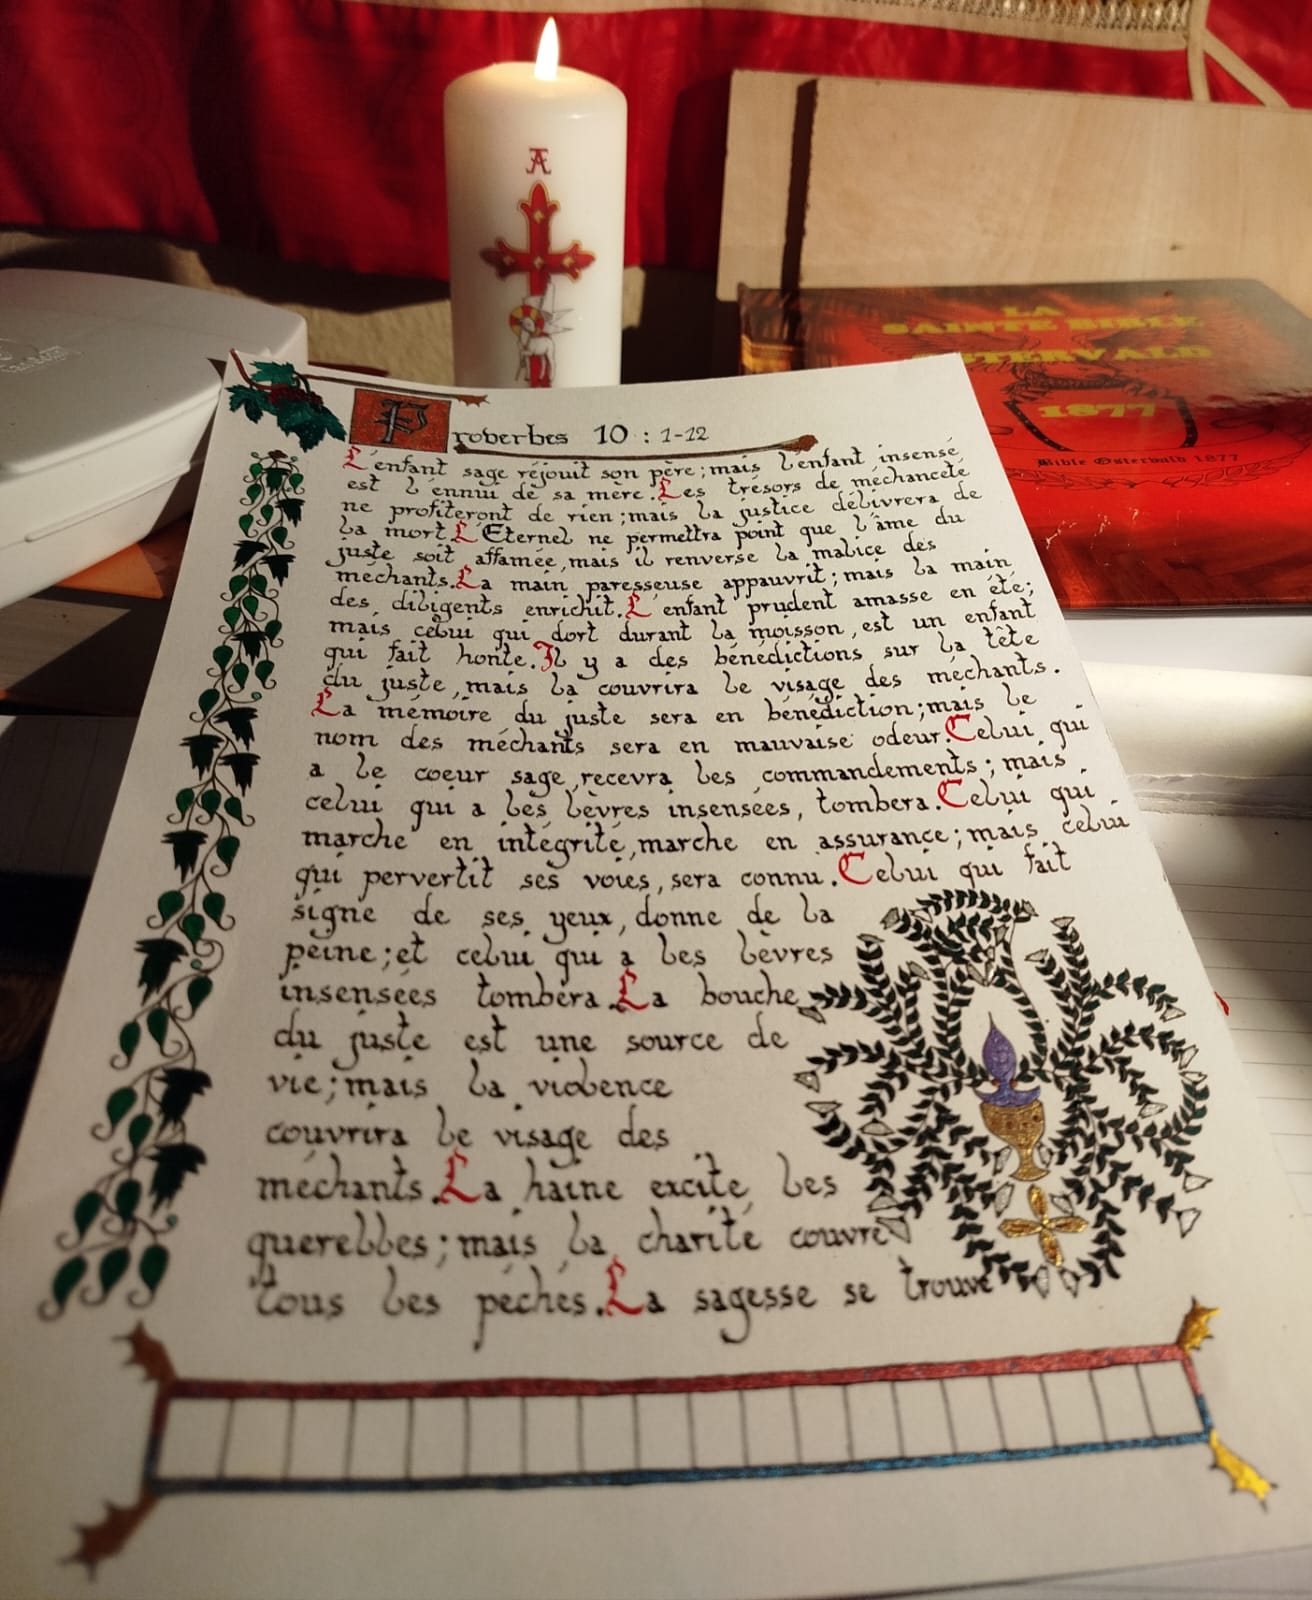 A
LA
SAINTE BIBLE
OSTERVALD
1877
Bible Ostervald 1877
Proverbes 10 : 1-12
L'enfant sage réjouit son père ; mais l'enfant insensé
est l'ennui de sa mère. Les trésors de méchanceté
ne profiteront de rien ; mais la justice délivrera de
la mort. L'Eternel ne permettra point que l'âme du
juste soit affamée, mais il renverse la malice des
méchants. La main paresseuse appauvrit ; mais la main
des diligents enrichit. L'enfant prudent amasse en été ;
mais celui qui dort durant la moisson, est un enfant
qui fait honte. Il y a des bénédictions sur la tête
du juste, mais la couvrira le visage des méchants.
La mémoire du juste sera en bénédiction ; mais le
nom des méchants sera en mauvaise odeur. Celui qui
a le coeur sage, recevra les commandements ; mais
celui qui a les lèvres insensées, tombera. Celui qui
marche en intégrité, marche en assurance ; mais celui
qui pervertit ses voies, sera connu. Celui qui fait
signe de ses yeux, donne de la
peine ; et celui qui a les lèvres
insensées tombera. La bouche
du juste est une source de
vie ; mais la violence
couvrira le visage des
méchants. La haine excite les
querelles ; mais la charité couvre
tous les péchés. La sagesse se trouve